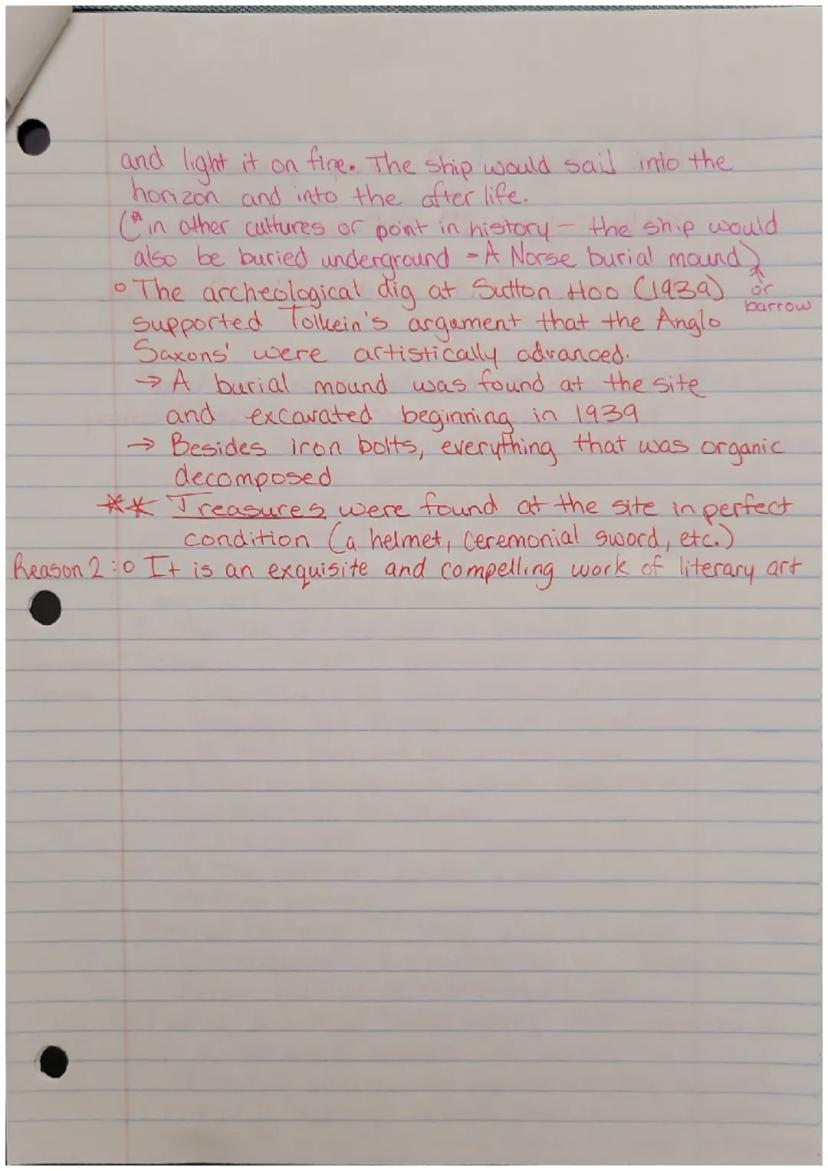 and light it on fire. The ship would sail into the
horizon and into the after life.
(*in other cultures or point in history - the ship would
also be buried underground - A Norse burial mound)
↑ or barrow
○ The archeological dig at Sutton Hoo (1939)
supported Tolkein's argument that the Anglo
Saxons' were artistically advanced.
→ A burial mound was found at the site
and excavated beginning in 1939
→ Besides iron bolts, everything that was organic
decomposed
** Treasures were found at the site in perfect
condition (a helmet, ceremonial sword, etc.)
Reason 2: ○ It is an exquisite and compelling work of literary art